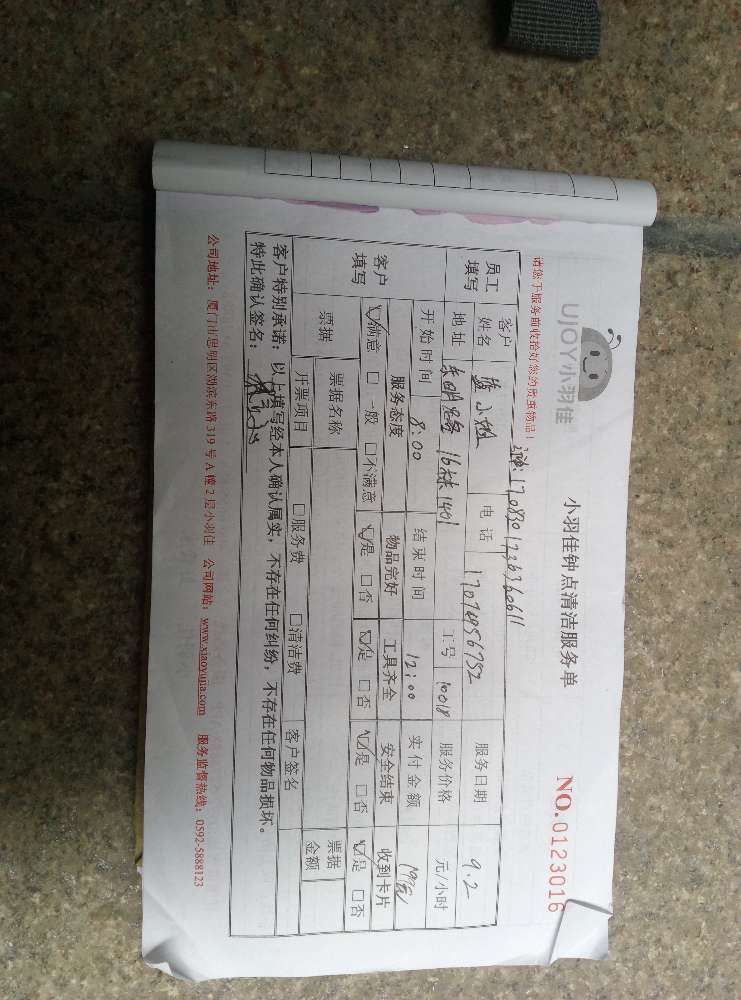 UJOY小羽佳
小羽佳钟点清洁服务单
NO.0123016
请您于服务前收拾好您的贵重物品！
1708301236360611
员工填写 客户姓名 蓝小姐 电话 17074956752 服务日期 9.2
地址 16栋1401 工号 10018 服务价格 元/小时
开始时间 8:00 结束时间 12:00 实付金额
客户填写 服务态度 物品完好 工具齐全 安全结束 收到卡片
☑满意 □一般 □不满意 ☑是 □否 ☑是 □否 ☑是 □否 ☑是 □否
票据 票据名称 票据金额
开票项目 □服务费 □清洁费 客户签名
客户特别承诺：以上填写经本人确认属实，不存在任何纠纷，不存在任何物品损坏。
特此确认签名：
公司地址：厦门市思明区湖滨东路319号A幢2层小羽佳 公司网站：www.xiaoyujia.com 服务监督热线：0592-5888123